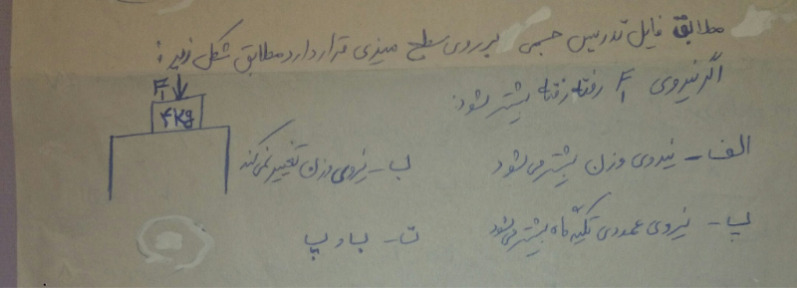 مطابق فایل تدریس جسمی بر روی سطح میزی قرار دارد مطابق شکل زیر:
اگر نیروی F₁ رفته رفته بیشتر شود:
F₁
۴kg
الف - نیروی وزن بیشتر می شود    ب - نیروی وزن تغییر نمی کند
پ - نیروی عمودی تکیه گاه بیشتر می شود    ت - ب و پ